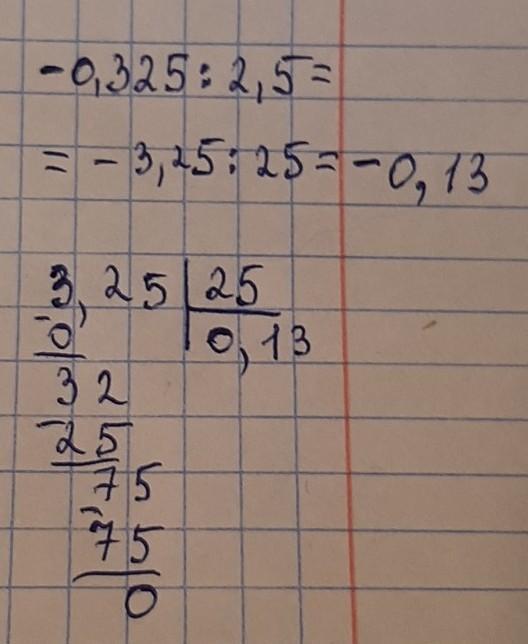 -0,325:2,5=
=-3,25:25=-0,13
3,25|25
-0 0,13
32
-25
75
-75
0